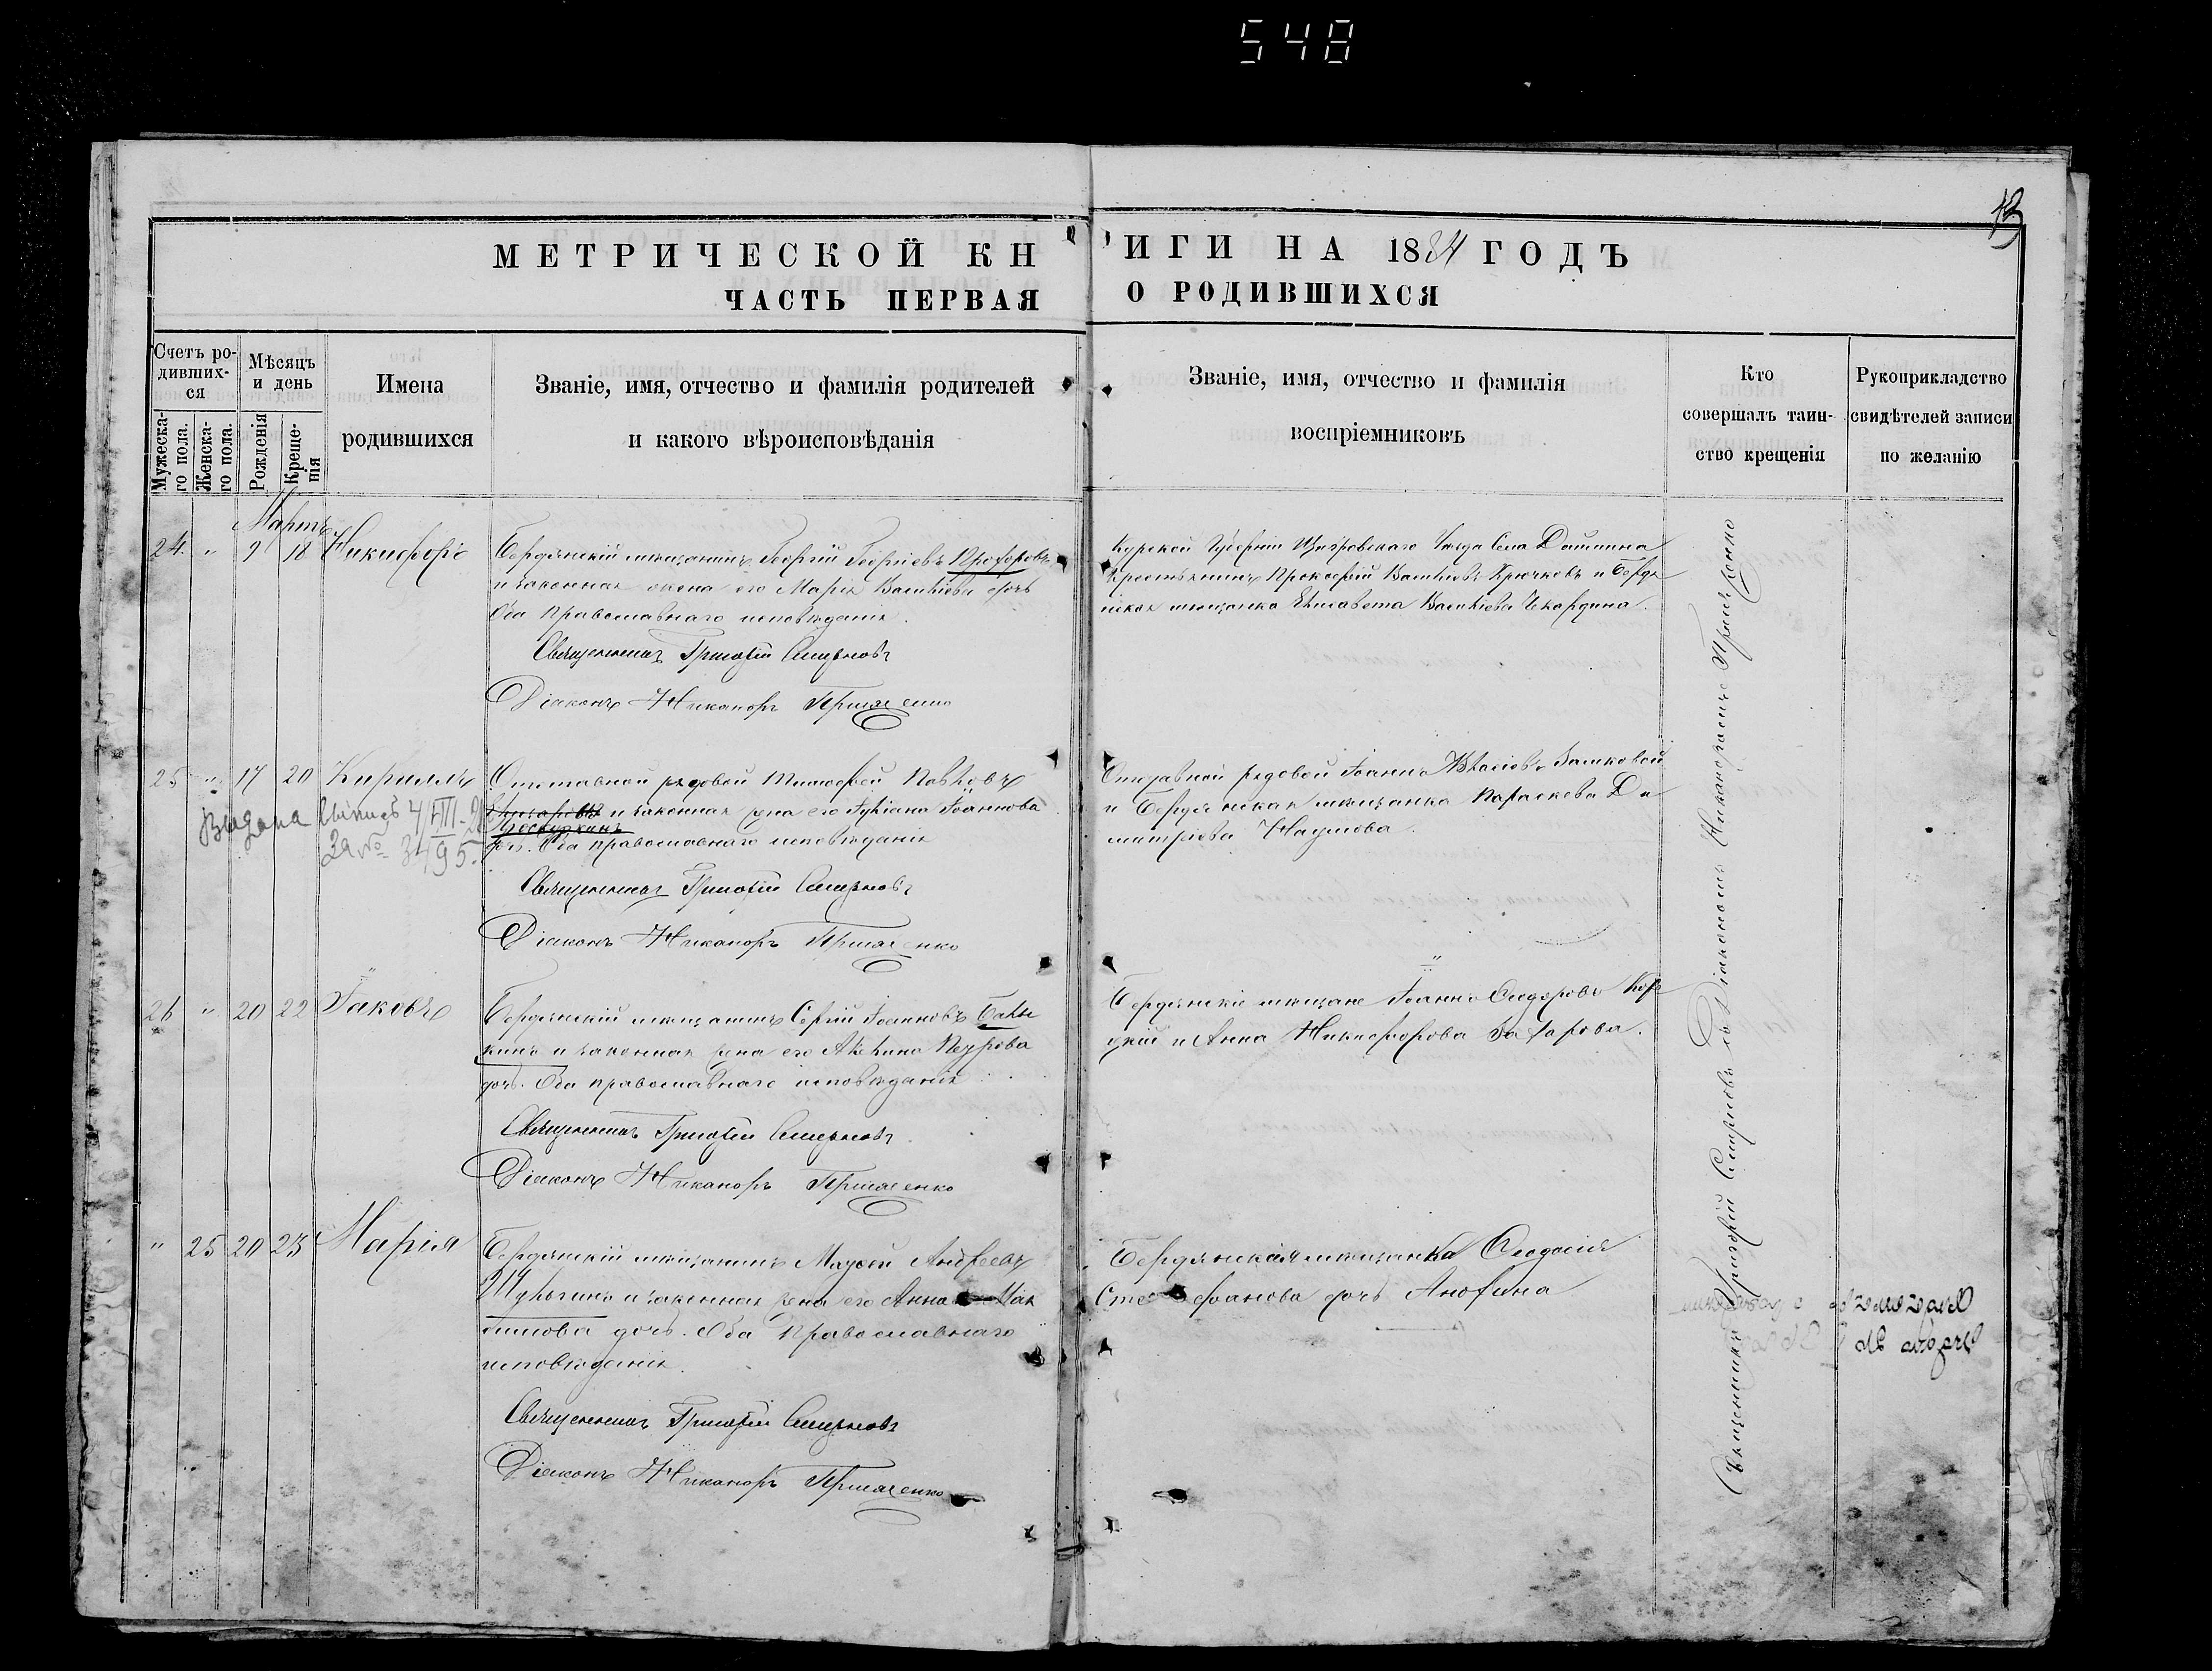 548
13
МЕТРИЧЕСКОЙ КНИГИ НА 1884 ГОДЪ
ЧАСТЬ ПЕРВАЯ О РОДИВШИХСЯ
Счетъ ро-
дивших-
ся
Мужеска-
го пола.
Женска-
го пола.
Мѣсяцъ
и день
Рожденія
Креще-
нія
Имена
родившихся
Званіе, имя, отчество и фамилія родителей
и какого вѣроисповѣданія
Званіе, имя, отчество и фамилія
воспріемниковъ
Кто
совершалъ таин-
ство крещенія
Рукоприкладство
свидѣтелей записи
по желанію
Мартъ
24 " 9 18 Никифоръ
Бердянскій мѣщанинъ Георгій Георгіевъ Прозоровъ
и законная жена его Марія Василіева дочь
Оба Православнаго исповѣданія.
Священникъ Григорій Смирновъ
Діаконъ Никаноръ Прилепенко
Курской Губерніи Щигровскаго Уѣзда Села
крестьянинъ Прокофій Василіевъ Крючковъ и Бердя
нская мѣщанка Елисавета Василіева
25 " 17 20 Кириллъ
Отставной рядовой Тимофей Павловъ
и законная жена его Іуліана Іоаннова
Проскуркинъ
дочь. Оба православнаго исповѣданія
Священникъ Григорій Смирновъ
Діаконъ Никаноръ
Выдана
За №
Отставной рядовой Іоаннъ Власіевъ Замковой
и Бердянская мѣщанка Параскева Ди
митріева Наумова
26 " 20 22 Іаковъ
Бердянскій мѣщанинъ Сергій Іоанновъ Балы
кинъ и законная жена его Акилина Петрова
дочь. Оба православнаго исповѣданія
Священникъ Григорій Смирновъ
Діаконъ Никаноръ
Бердянскіе мѣщане Іоаннъ Сидоровъ
и Анна Никифорова Захарова.
" 25 20 23 Марія
Бердянскій мѣщанинъ Андреевъ
Шульгинъ и законная жена его Анна Мак
симова дочь. Оба Православнаго
исповѣданія.
Священникъ Григорій Смирновъ
Діаконъ Никаноръ
Бердянская мѣщанка Феодосія
Стефанова дочь Анохина
Священникъ Григорій Смирновъ съ Діакономъ Никаноромъ